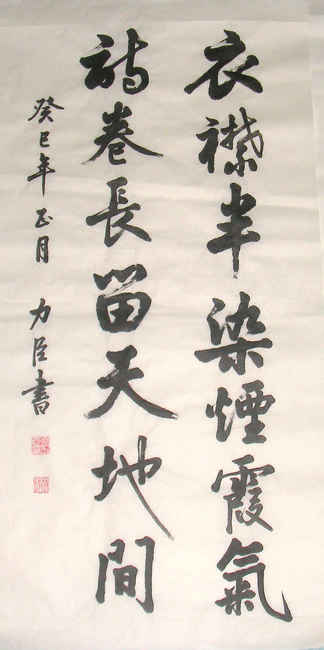 衣襟半染煙霞氣
詩卷長留天地間
癸巳年正月 力臣書